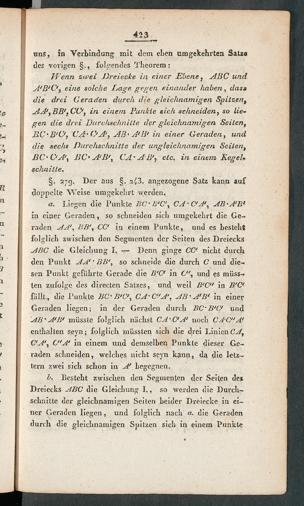 423
uns, in Verbindung mit dem eben umgekehrten Satze
des vorigen §., folgendes Theorem:
Wenn zwei Dreiecke in einer Ebene, ABC und
A'B'C', eine solche Lage gegen einander haben, dass
die drei Geraden durch die gleichnamigen Spitzen,
AA', BB', CC', in einem Punkte sich schneiden, so lie-
gen die drei Durchschnitte der gleichnamigen Seiten,
BC·B'C', CA·C'A', AB·A'B' in einer Geraden, und
die sechs Durchschnitte der ungleichnamigen Seiten,
BC·C'A', BC·A'B', CA·A'B', etc. in einem Kegel-
schnitte.
§. 279. Der aus §. 243. angezogene Satz kann auf
doppelte Weise umgekehrt werden.
a. Liegen die Punkte BC·B'C', CA·C'A', AB·A'B'
in einer Geraden, so schneiden sich umgekehrt die Ge-
raden AA', BB', CC' in einem Punkte, und es besteht
folglich zwischen den Segmenten der Seiten des Dreiecks
ABC die Gleichung I. — Denn ginge CC' nicht durch
den Punkt AA'·BB', so schneide die durch C und die-
sen Punkt geführte Gerade die B'C' in C'', und es müss-
ten zufolge des directen Satzes, und weil B'C'' in B'C'
fällt, die Punkte BC·B'C', CA·C''A', AB·A'B' in einer
Geraden liegen; in der Geraden durch BC·B'C' und
AB·A'B' müsste folglich nächst CA·C'A' noch CA·C''A'
enthalten seyn; folglich müssten sich die drei Linien CA,
C'A', C''A' in einem und demselben Punkte dieser Ge-
raden schneiden, welches nicht seyn kann, da die letz-
tern zwei sich schon in A' begegnen.
b. Besteht zwischen den Segmenten der Seiten des
Dreiecks ABC die Gleichung I., so werden die Durch-
schnitte der gleichnamigen Seiten beider Dreiecke in ei-
ner Geraden liegen, und folglich nach a. die Geraden
durch die gleichnamigen Spitzen sich in einem Punkte